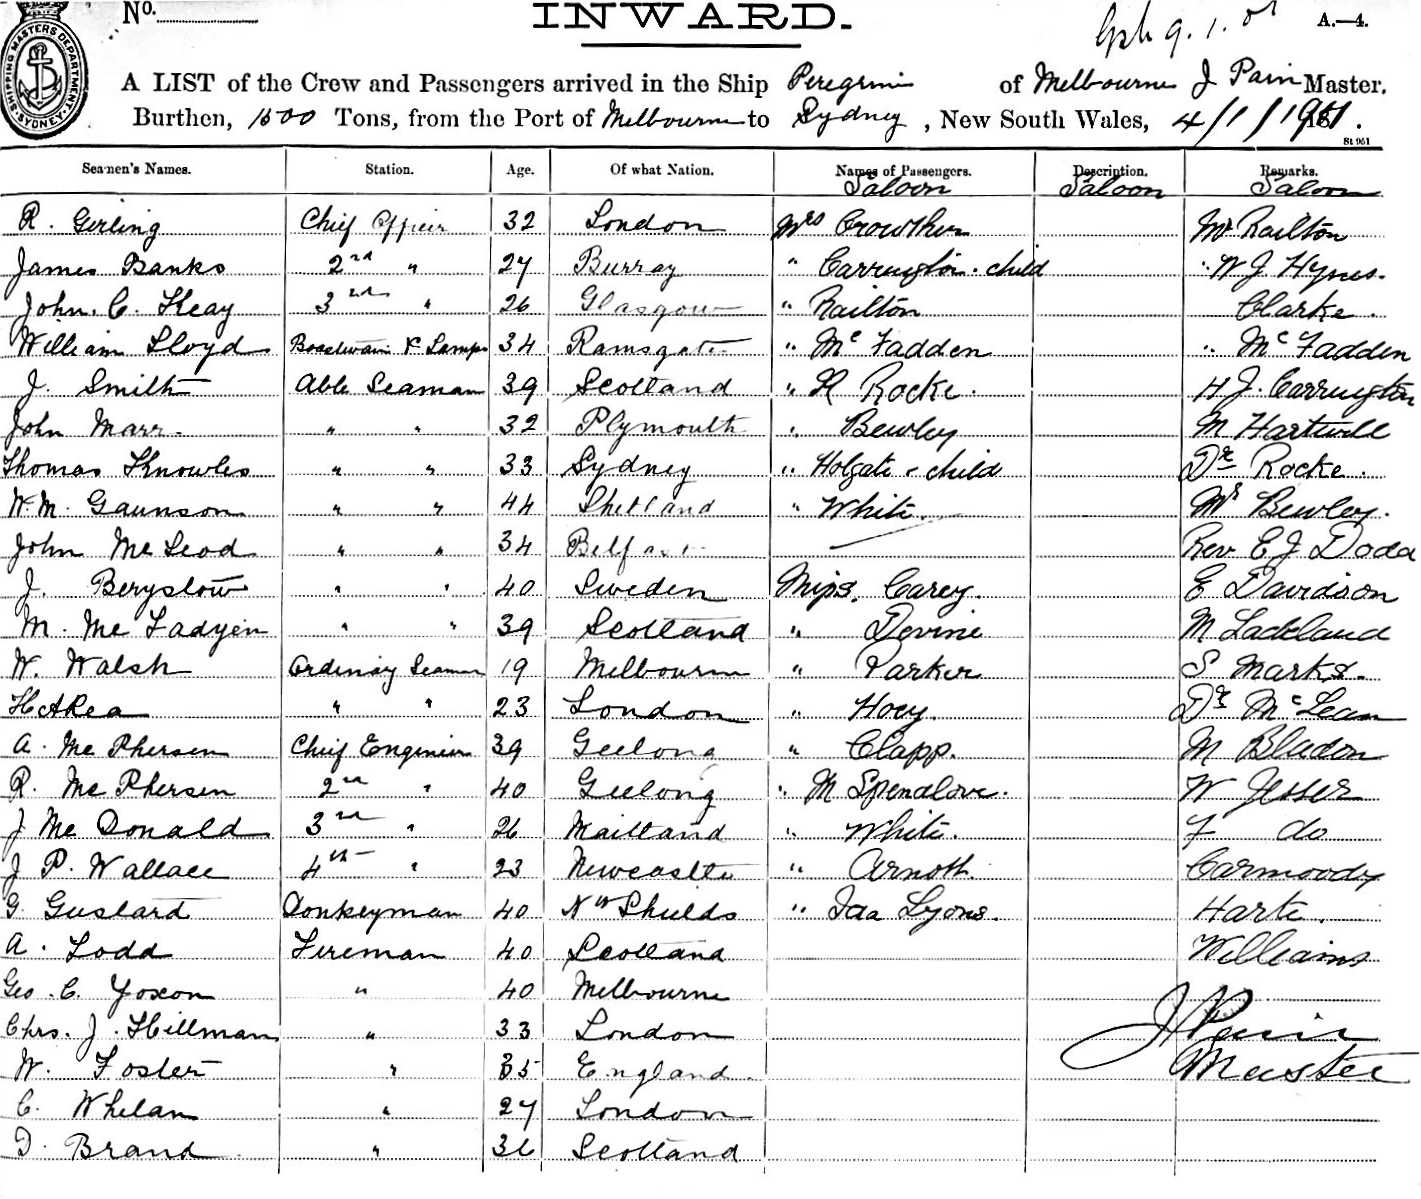 No.
INWARD.
9. 1. 01
A.—4.
SHIPPING MASTERS DEPARTMENT SYDNEY
A LIST of the Crew and Passengers arrived in the Ship Peregrine of Melbourne J Pain Master.
Burthen, 1500 Tons, from the Port of Melbourne to Sydney, New South Wales, 4/1/1901.
St 951
Seamen's Names. Station. Age. Of what Nation. Names of Passengers. Description. Remarks.
Saloon Saloon Saloon
R. Girling Chief Officer 32 London Mrs Crowther Mr Railton
James Banks 2nd " 27 Burray " Carrington & child " W J Hynes.
John. C. Skeay 3rd " 26 Glasgow " Railton Clarke.
William Lloyd Boastwain & Lamps 34 Ramsgate " Mc Fadden " Mc Fadden
J. Smith Able Seaman 39 Scotland " H Rocke. H J. Carrington
John Marr. " " 32 Plymouth " Bewley M Hartwell
Thomas Knowles " " 33 Sydney " Holgate & child Dr Rocke.
W. M. Gaunson " " 44 Shetland " White. Mr Bewley.
John McLeod " " 34 Belfast Rev E J Dodd
J. Berystow " " 40 Sweden Miss. Carey. E Davidson
M. McFadyen " " 39 Scotland " Devine M Lackland
W. Walsh Ordinary Seaman 19 Melbourne " Parker S Marks.
H A Rea " " 23 London " Hoey. Dr McLean
A. McPhersen Chief Enginier 39 Geelong " Clapp. M Bladon
R. McPhersen 2nd " 40 Geelong " M Spendlove. W Jesser
J McDonald 3rd " 26 Maitland " White. F do
J P. Wallace 4th " 23 Newcastle " Arnott. Carmoody
G. Gustard Donkeyman 40 Nth Shields " Ida Lyons. Harte.
A. Todd Fireman 40 Scotland Williams
Geo. C. Yoxon " 40 Melbourne
Chrs. J. Hillman " 33 London J Pain
W. Foster " 35 England. Master
C. Whelan " 27 London
D. Brand " 36 Scotland